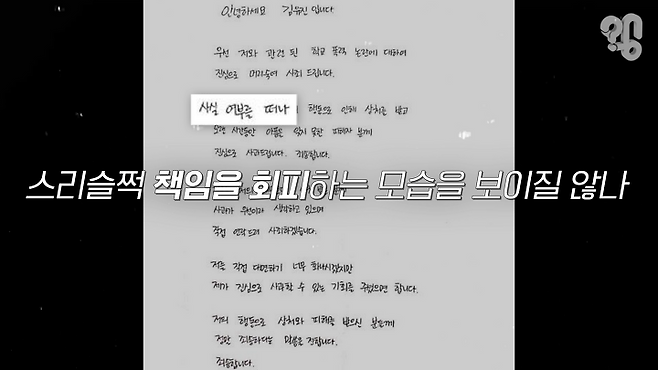 안녕하세요 김유진 입니다
우선 저와 관련 된 학교 폭력 논란에 대하여
진심으로 머리숙여 사죄 드립니다.
사실 여부를 떠나 행동으로 인해 상처를 받고
오랜 시간동안 아픔을 잊지 못한 피해자 분께
진심으로 사과드립니다. 죄송합니다.
스리슬쩍 책임을 회피하는 모습을 보이질 않나
사과가 우선이라 생각하고 있으며
직접 연락드려 사죄하겠습니다.
저를 직접 대면하기 너무 화나시겠지만
제가 진심으로 사과할 수 있는 기회를 주셨으면 합니다.
저의 행동으로 상처와 피해를 받으신 분들께
정말 죄송하다는 말씀을 전합니다.
죄송합니다.